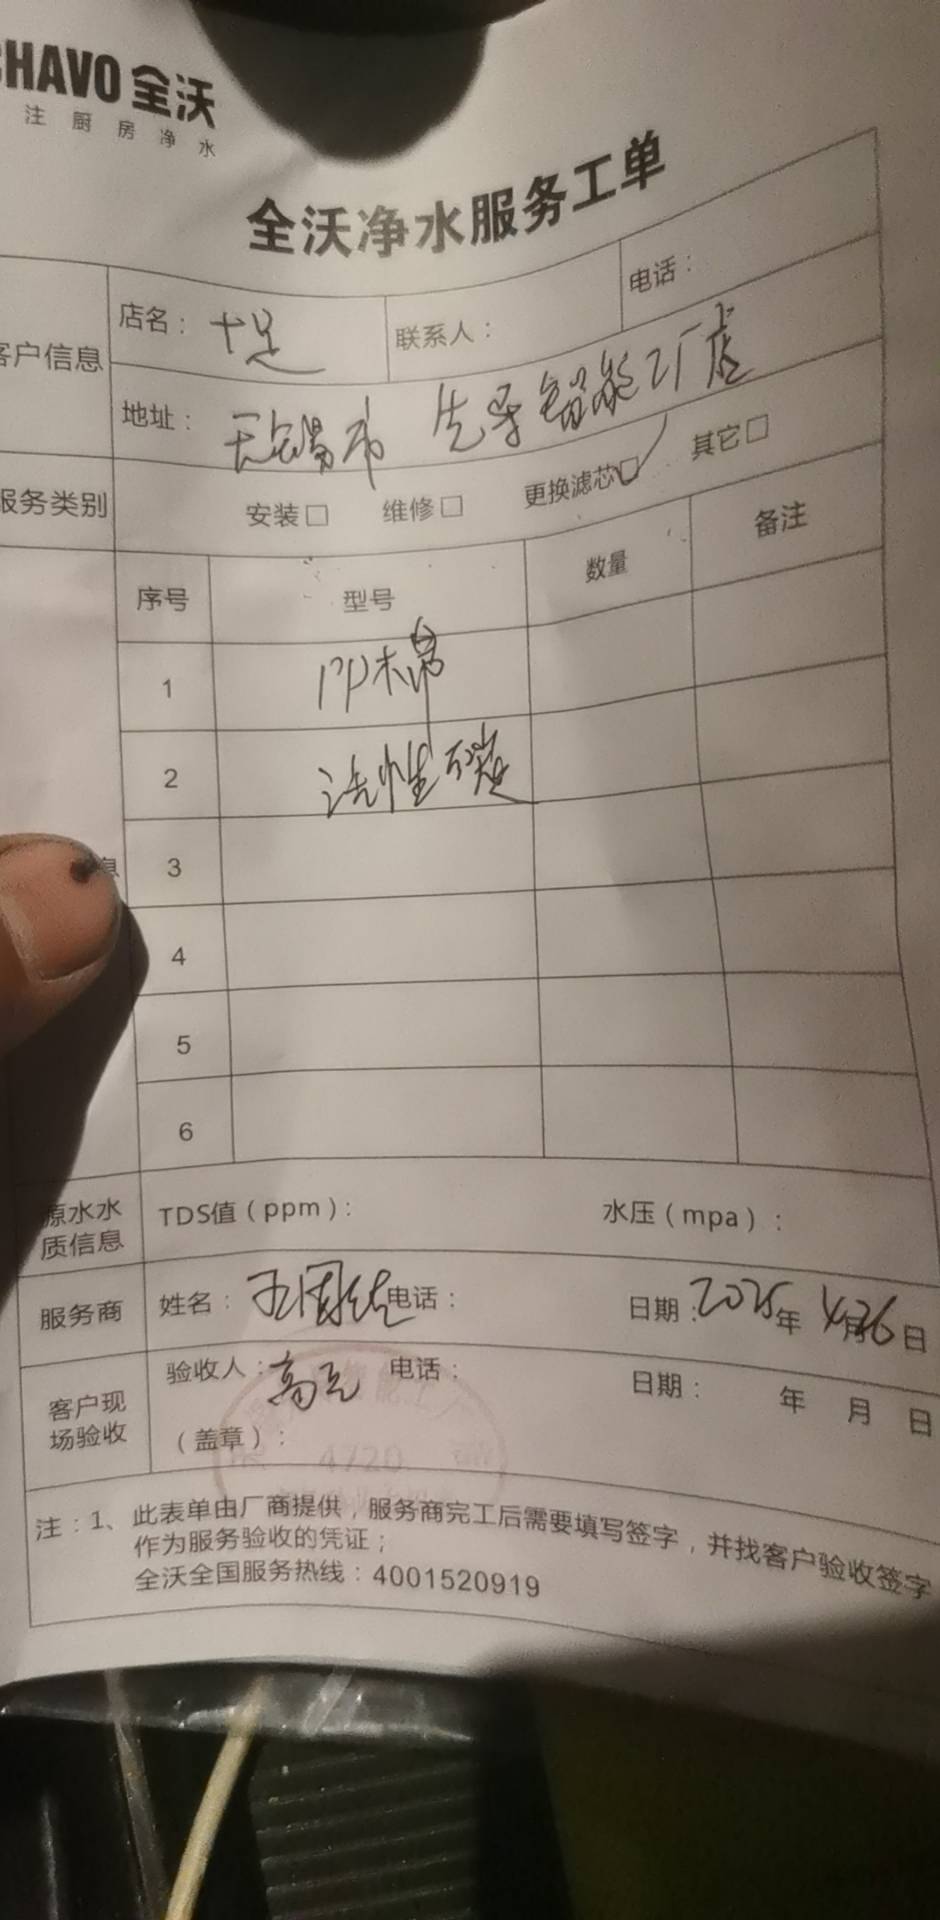 CHAVO 全沃
注厨房净水
全沃净水服务工单
客户信息
店名： 十足 联系人： 电话：
地址： 无锡市 先导智能工厂店
服务类别 安装□ 维修□ 更换滤芯□✓ 其它□
序号 型号 数量 备注
1 PP棉
2 活性碳
3
4
5
6
息
原水水质信息 TDS值（ppm）： 水压（mpa）：
服务商 姓名： 电话： 日期：2025年 4月26日
客户现场验收 验收人： 电话： 日期： 年 月 日
（盖章）：
4720
注：1、此表单由厂商提供，服务商完工后需要填写签字，并找客户验收签字
作为服务验收的凭证；
全沃全国服务热线：4001520919